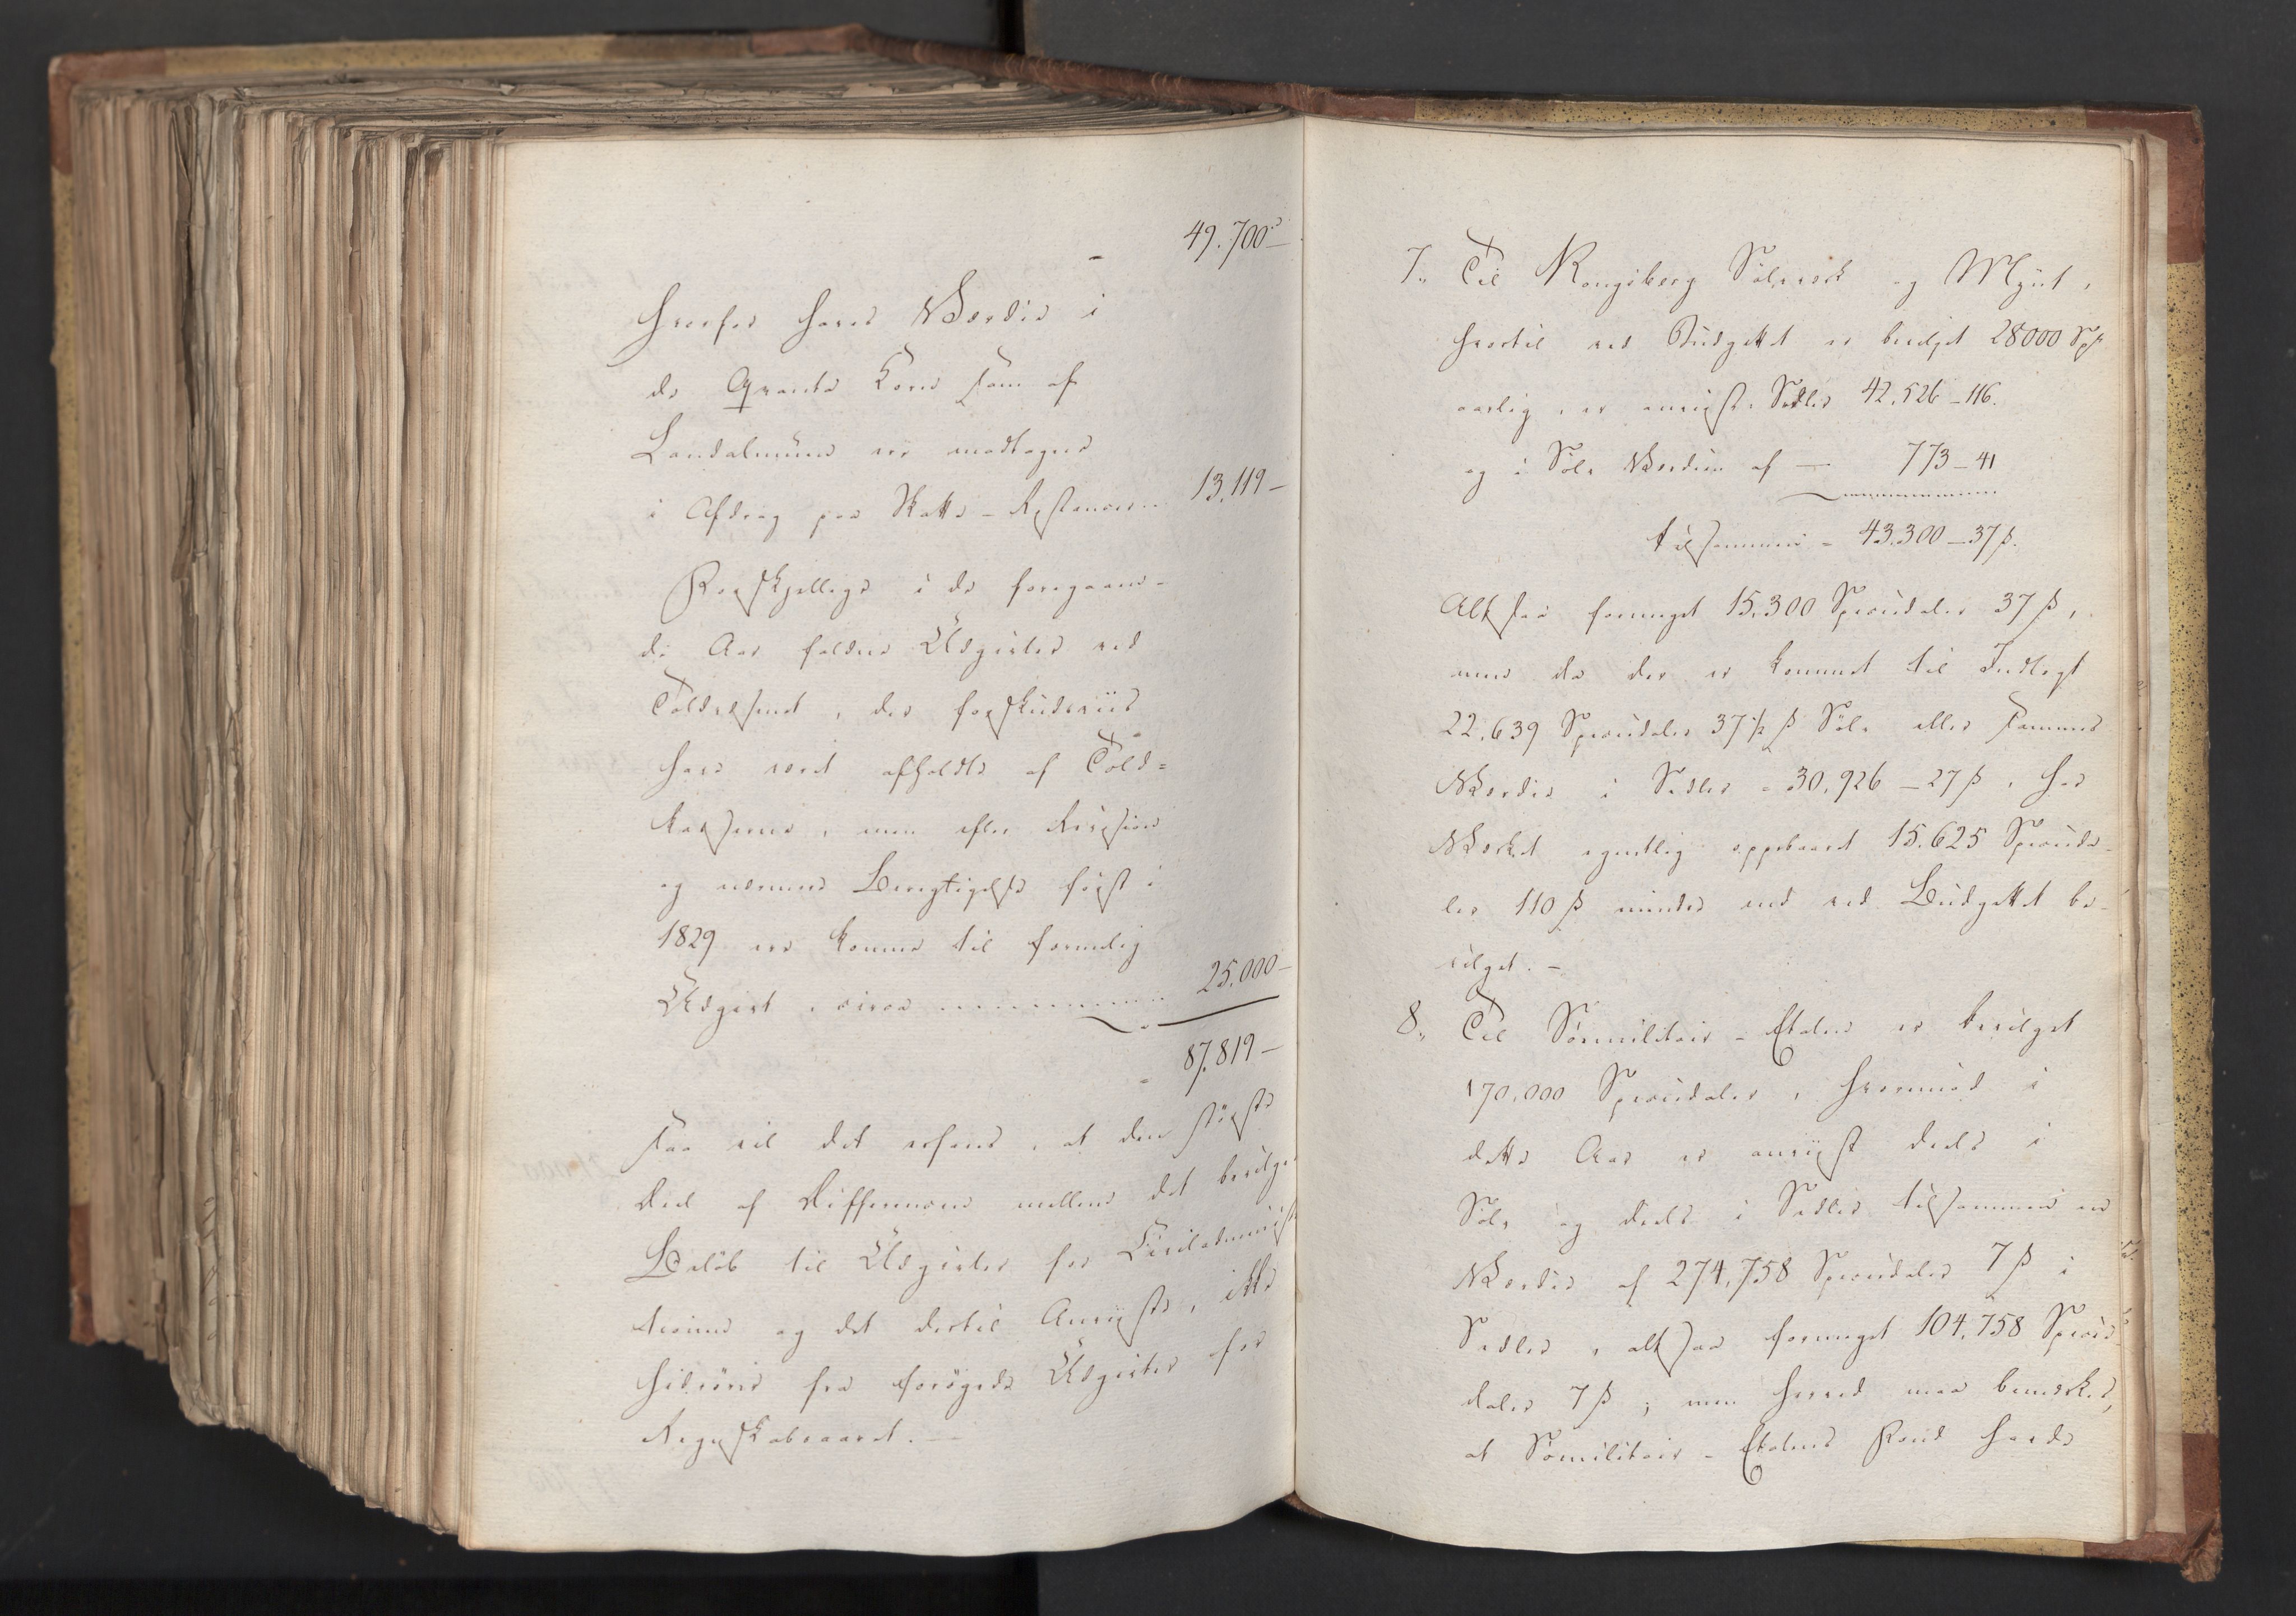 49.700 —
hvorfor haves Værdie i
de Qvanta Korn som af
Landalmuen ere modtagne
i Afdrag paa Skatte-Restancer 13.119 —
Forskjellige i de foregaaen-
de Aar faldne Udgivter ved
Toldvæsenet, der forskudsviis
have været afholdte af Told=
kasserne, men efter Revision
og nærmere Berigtigelse først i
1829 ere komne til formelig
Udgivt, circa 25.000 —
87.819 —
saa vil det erfares, at den største
Deel af Differencen mellem det bevilge
Beløb til Udgivter for Civiladminist
rationen og det dertil Anviiste, ikke
hidrører fra forøgede Udgivter for
Regnskabsaaret. —
7. Til Kongsberg Sølvværk og Mynt,
hvortil ved Budgettet er bevilget 28000 Sp
aarlig, er anviist Sedler 42.526 – 116.
og i Sølv Værdien af — 773 – 41
tilsammen - 43.300 – 37 ß.
Altsaa formeget 15.300 Speciedaler 37 ß,
men da der er kommet til Indtægt
22.639 Speciedaler 37 1/2 ß Sølv eller sammes
Værdie i Sedler - 30.926 – 27 ß, har
Værket egentlig oppebaaret 15.625 Specieda-
ler 110 ß mindre end ved Budgettet be-
vilget. —
8. Til Søemilitair-Etaten er bevilget
170.000 Speciedaler, hvorimod i
dette Aar er anviist deels i
Sølv og deels i Sedler tilsammen en
Værdie af 274.758 Speciedaler 7 ß i
Sedler, altsaa formeget 104.758 Specie
daler 7 ß; men herved maa bemærkes,
at Sømilitair-Etatens Fond havde